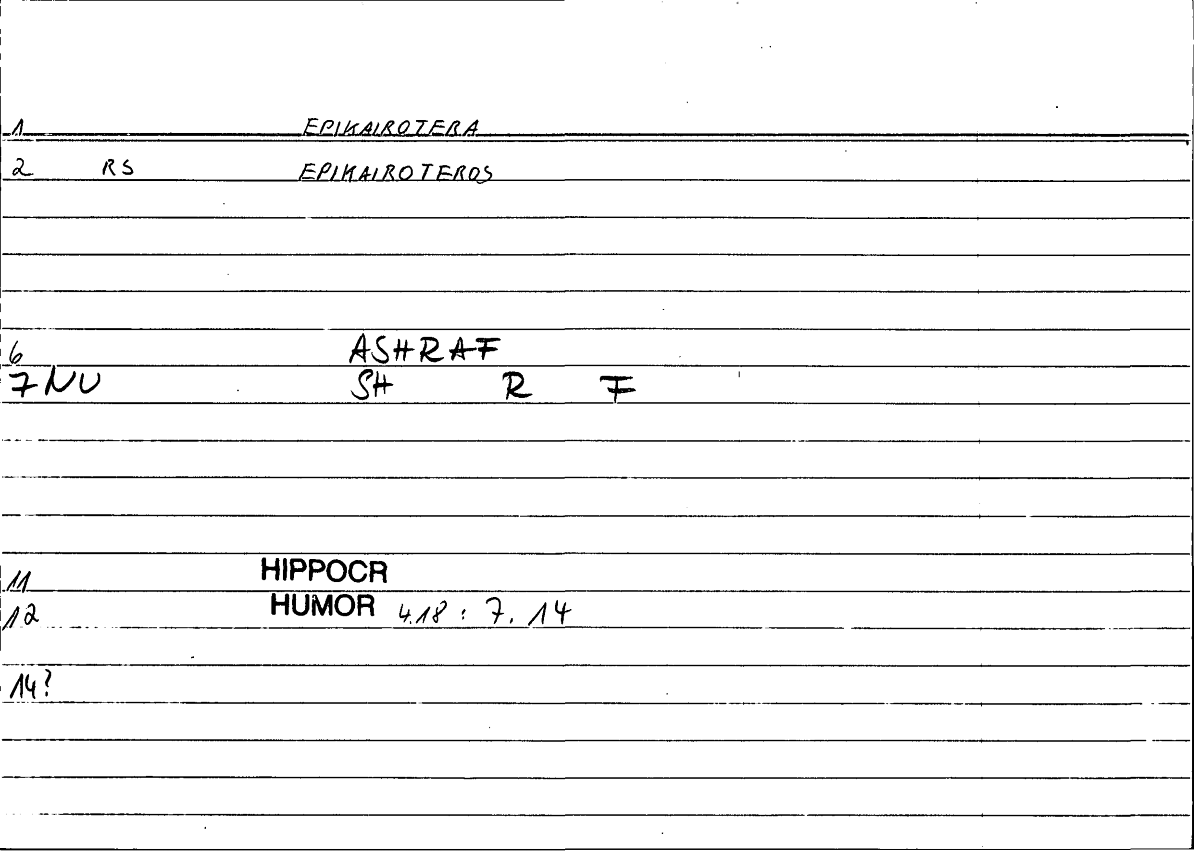 1 EPIKAIROTERA
2 RS EPIKAIROTEROS
6 ASHRAF
7 NU SH R F
11 HIPPOCR
12 HUMOR 4.18 : 7. 14
14?